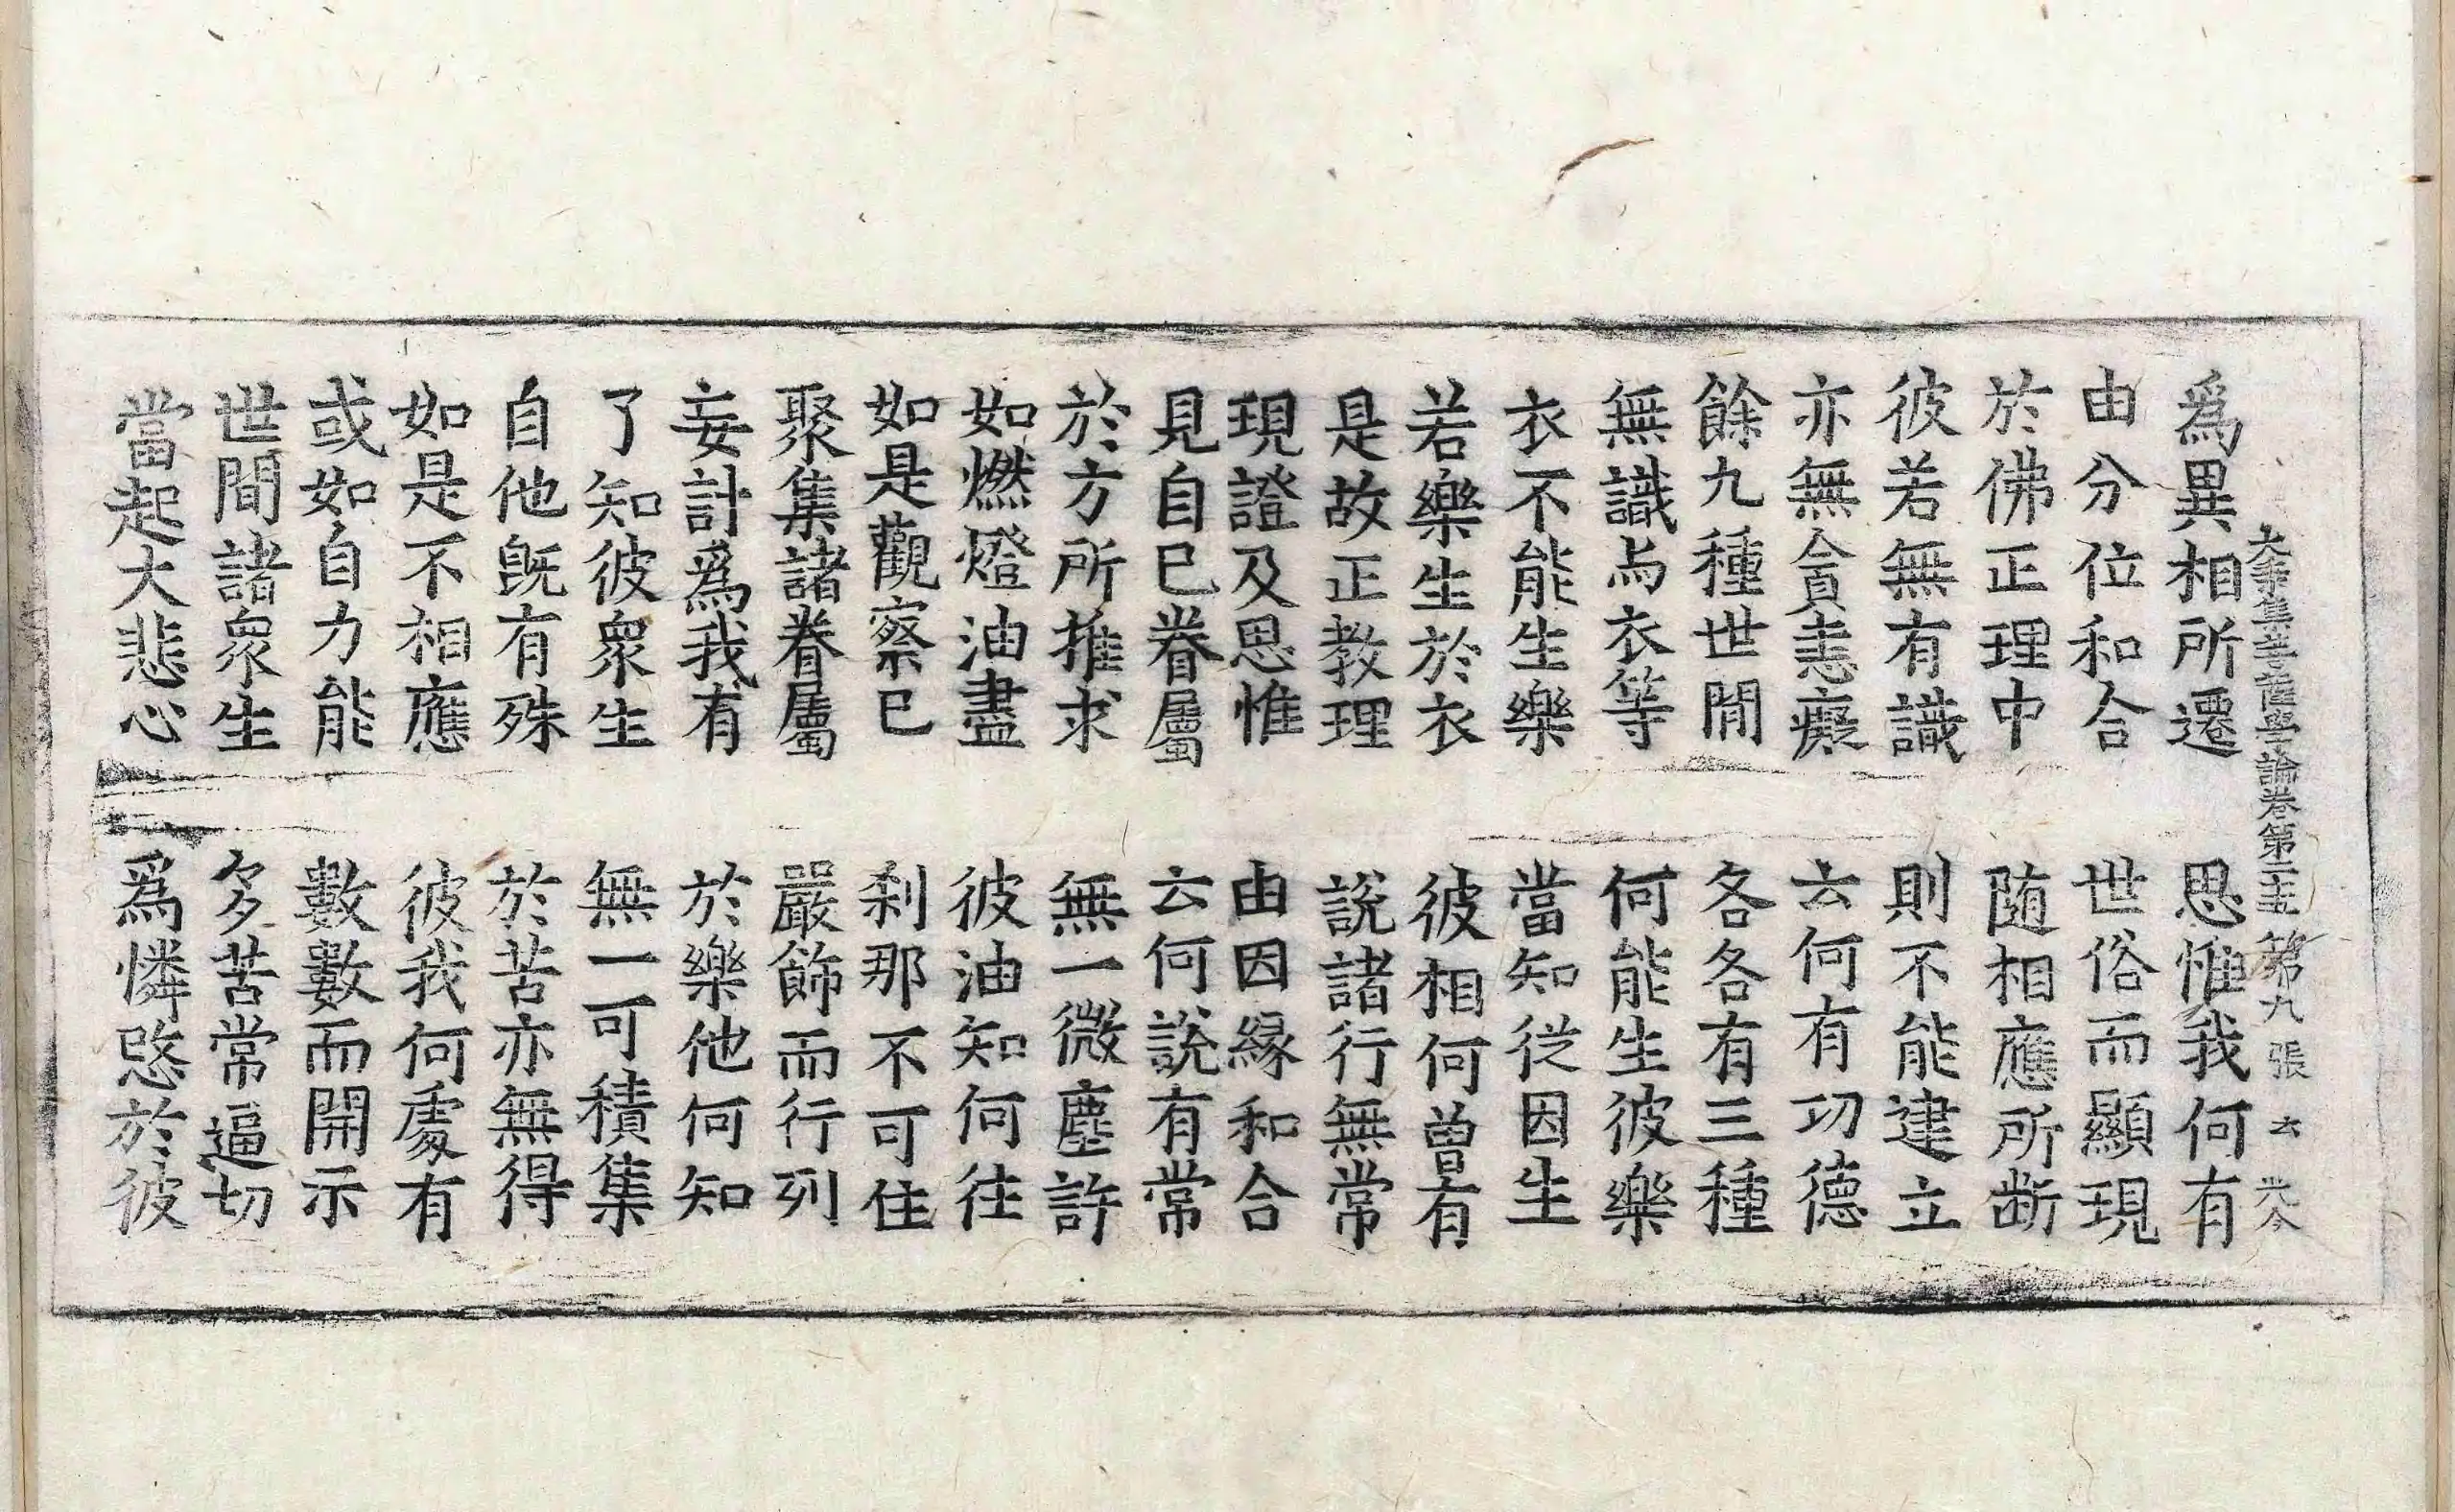 大乘集菩薩學論卷第二十五 第九張
爲異相所遷 思惟我何有
由分位和合 世俗而顯現
於佛正理中 随相應所断
彼若無有識 則不能建立
亦無貪恚癡 云何有功德
餘九種世間 各各有三種
無識与衣等 何能生彼樂
衣不能生樂 當知從因生
若樂生於衣 彼相何曾有
是故正教理 說諸行無常
現證及思惟 由因緣和合
見自已眷屬 云何說有常
於方所推求 無一微塵許
如燃燈油盡 彼油知何往
如是觀察已 刹那不可住
聚集諸眷屬 嚴飾而行列
妄計爲我有 於樂他何知
了知彼衆生 無一可積集
自他旣有殊 於苦亦無得
如是不相應 彼我何處有
或如自力能 數數而開示
世間諸衆生 多苦常逼切
當起大悲心 爲憐愍於彼